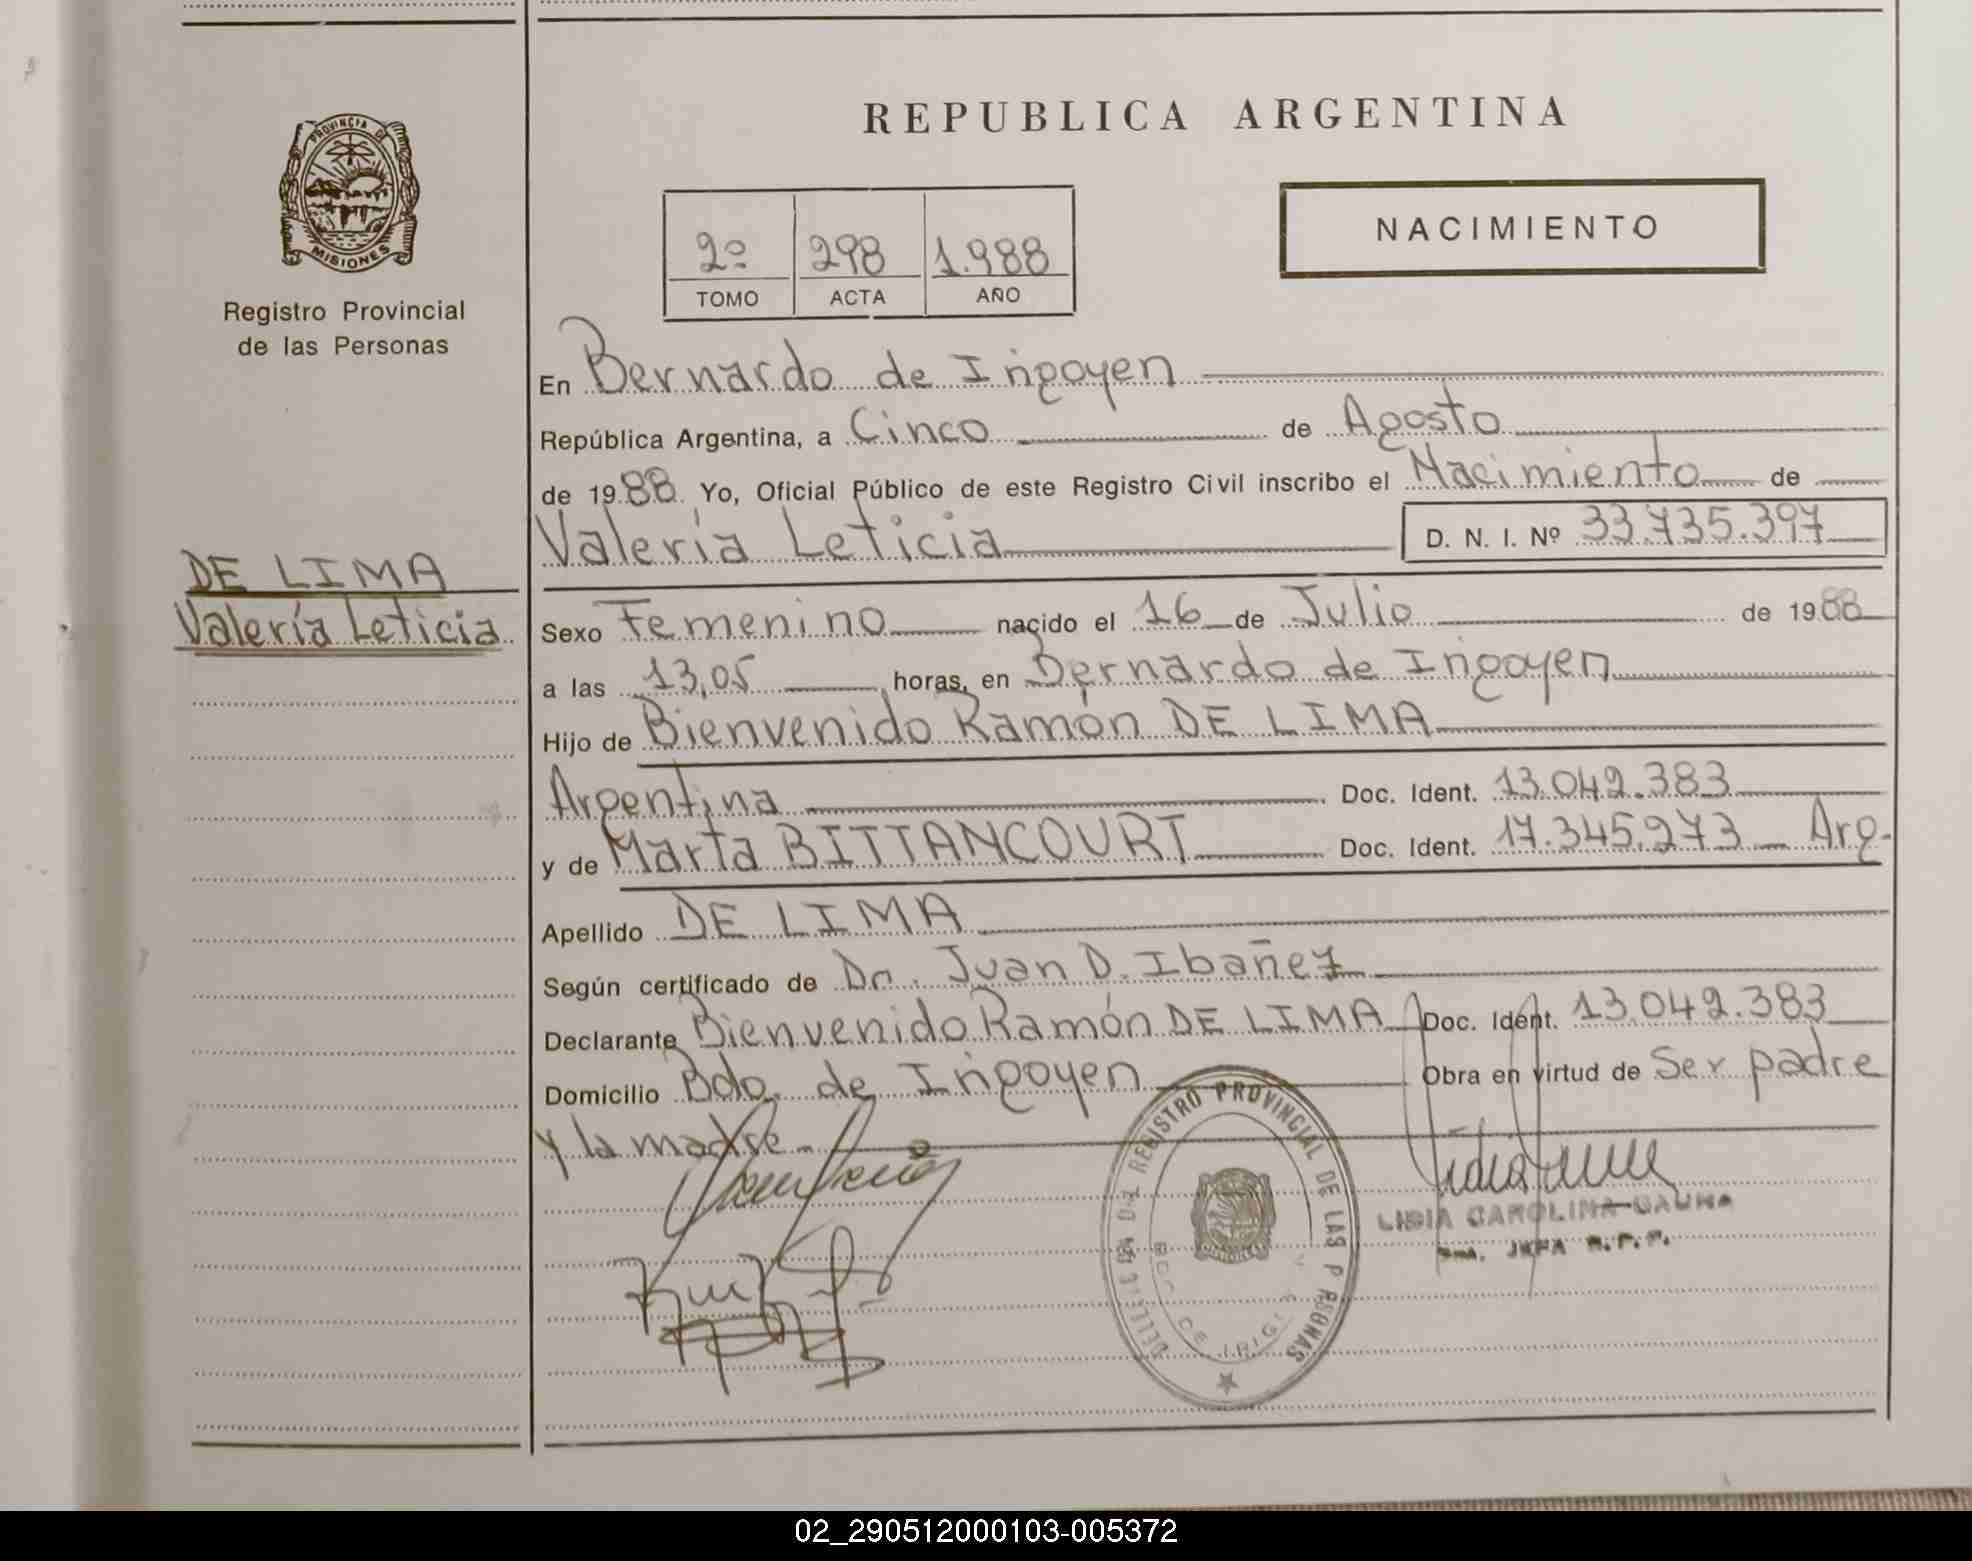 REPUBLICA ARGENTINA
PROVINCIA DE
MISIONES
Registro Provincial
de las Personas
NACIMIENTO
2º 298 1.988
TOMO ACTA AÑO
En Bernardo de Irigoyen
República Argentina, a Cinco de Agosto
de 1988 Yo, Oficial Público de este Registro Civil inscribo el Nacimiento de
Valeria Leticia D. N. I. Nº 33.735.397
DE LIMA
Valería Leticia
Sexo Femenino nacido el 16 de Julio de 1988
a las 13,05 horas, en Bernardo de Irigoyen
Hijo de Bienvenido Ramón DE LIMA
Argentina Doc. Ident. 13.042.383
y de Marta BITTANCOURT Doc. Ident. 17.345.273 Arg.
Apellido DE LIMA
Según certificado de Dr. Juan D. Ibañez
Declarante Bienvenido Ramón DE LIMA Doc. Ident. 13.042.383
Domicilio Bdo. de Irigoyen Obra en virtud de Ser padre
y la madre
REGISTRO PROVINCIAL DE LAS PERSONAS
LIDIA CAROLINA GAUNA
JEFA R.P.P.
02_290512000103-005372